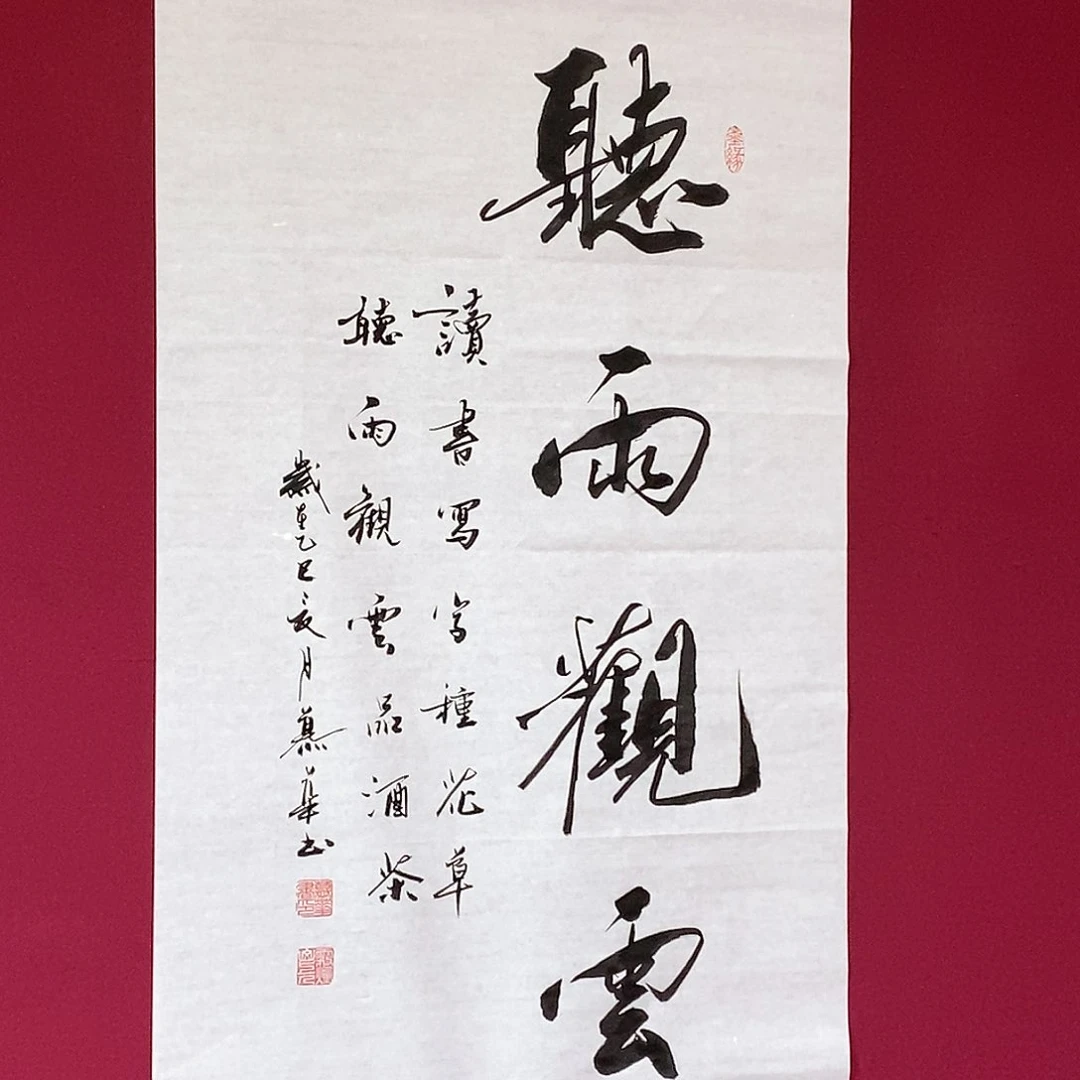 聽雨觀雲
讀書寫字種花草
聽雨觀雲品酒茶
歲在乙巳亥月慕華书